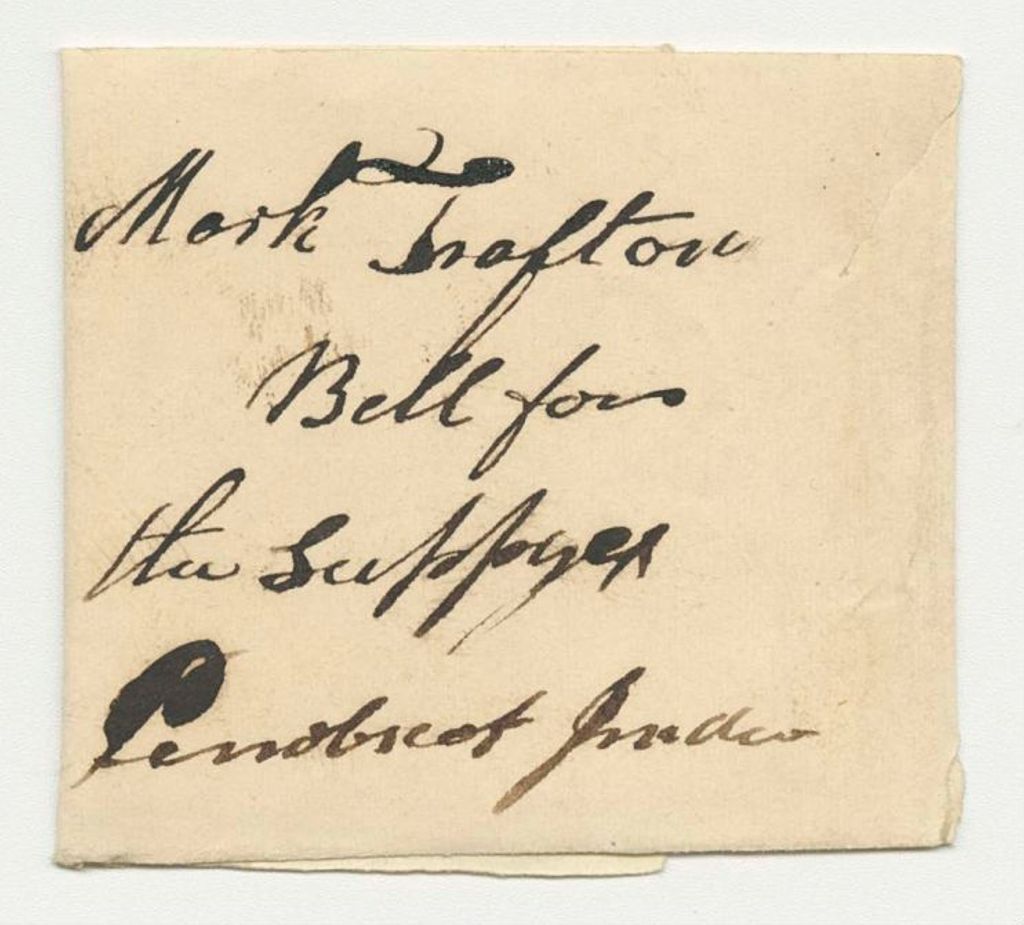 Mark Trafton
Bell for
the Suppyes
Penobscot Indian